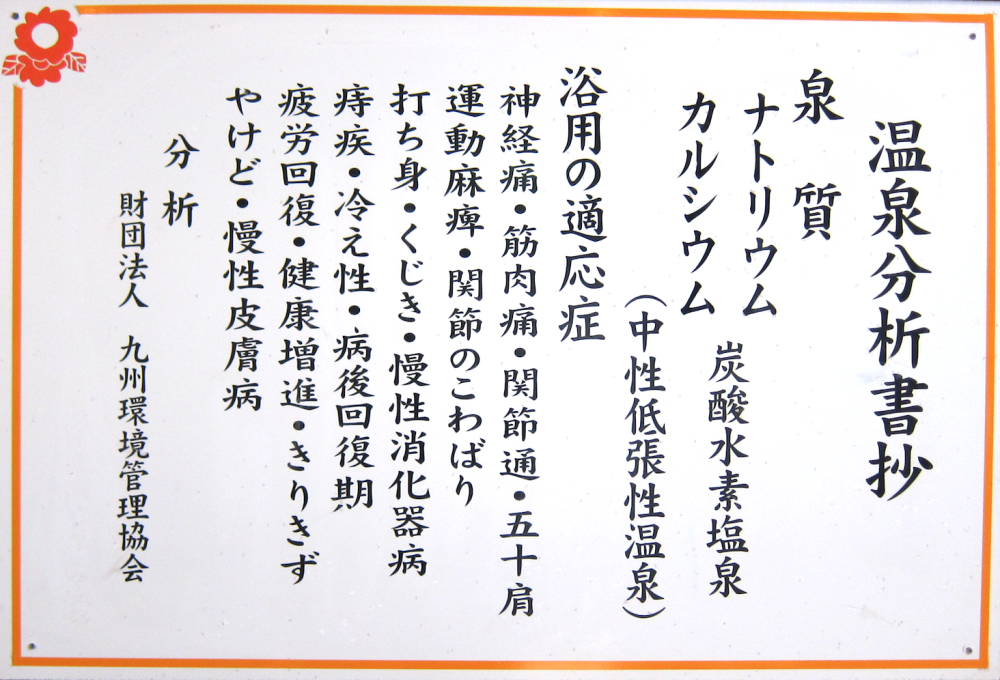 温泉分析書抄
泉質
ナトリウム
カルシウム
炭酸水素塩泉
(中性低張性温泉)
浴用の適応症
神経痛・筋肉痛・関節通・五十肩
運動麻痺・関節のこわばり
打ち身・くじき・慢性消化器病
痔疾・冷え性・病後回復期
疲労回復・健康増進・きりきず
やけど・慢性皮膚病
分析
財団法人 九州環境管理協会